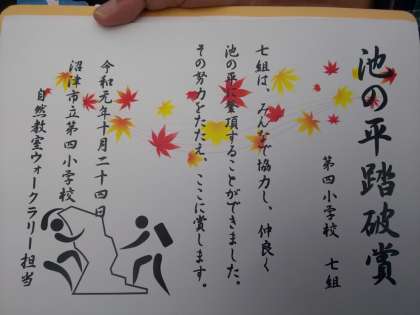 池の平踏破賞
第四小学校 七組
七組は、みんなで協力し、仲良く
池の平に登頂することができました。
その努力をたたえ、ここに賞します。
令和元年十月二十四日
沼津市立第四小学校
自然教室ウォークラリー担当